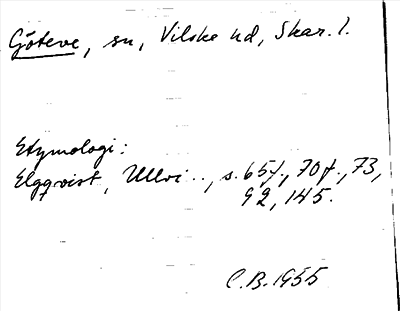 Göteve, sn, Vilske hd, Skar. l.
Etymologi:
Elgqvist, Ullvi.., s. 65f., 70f., 73,
92, 145.
C.B. 1955